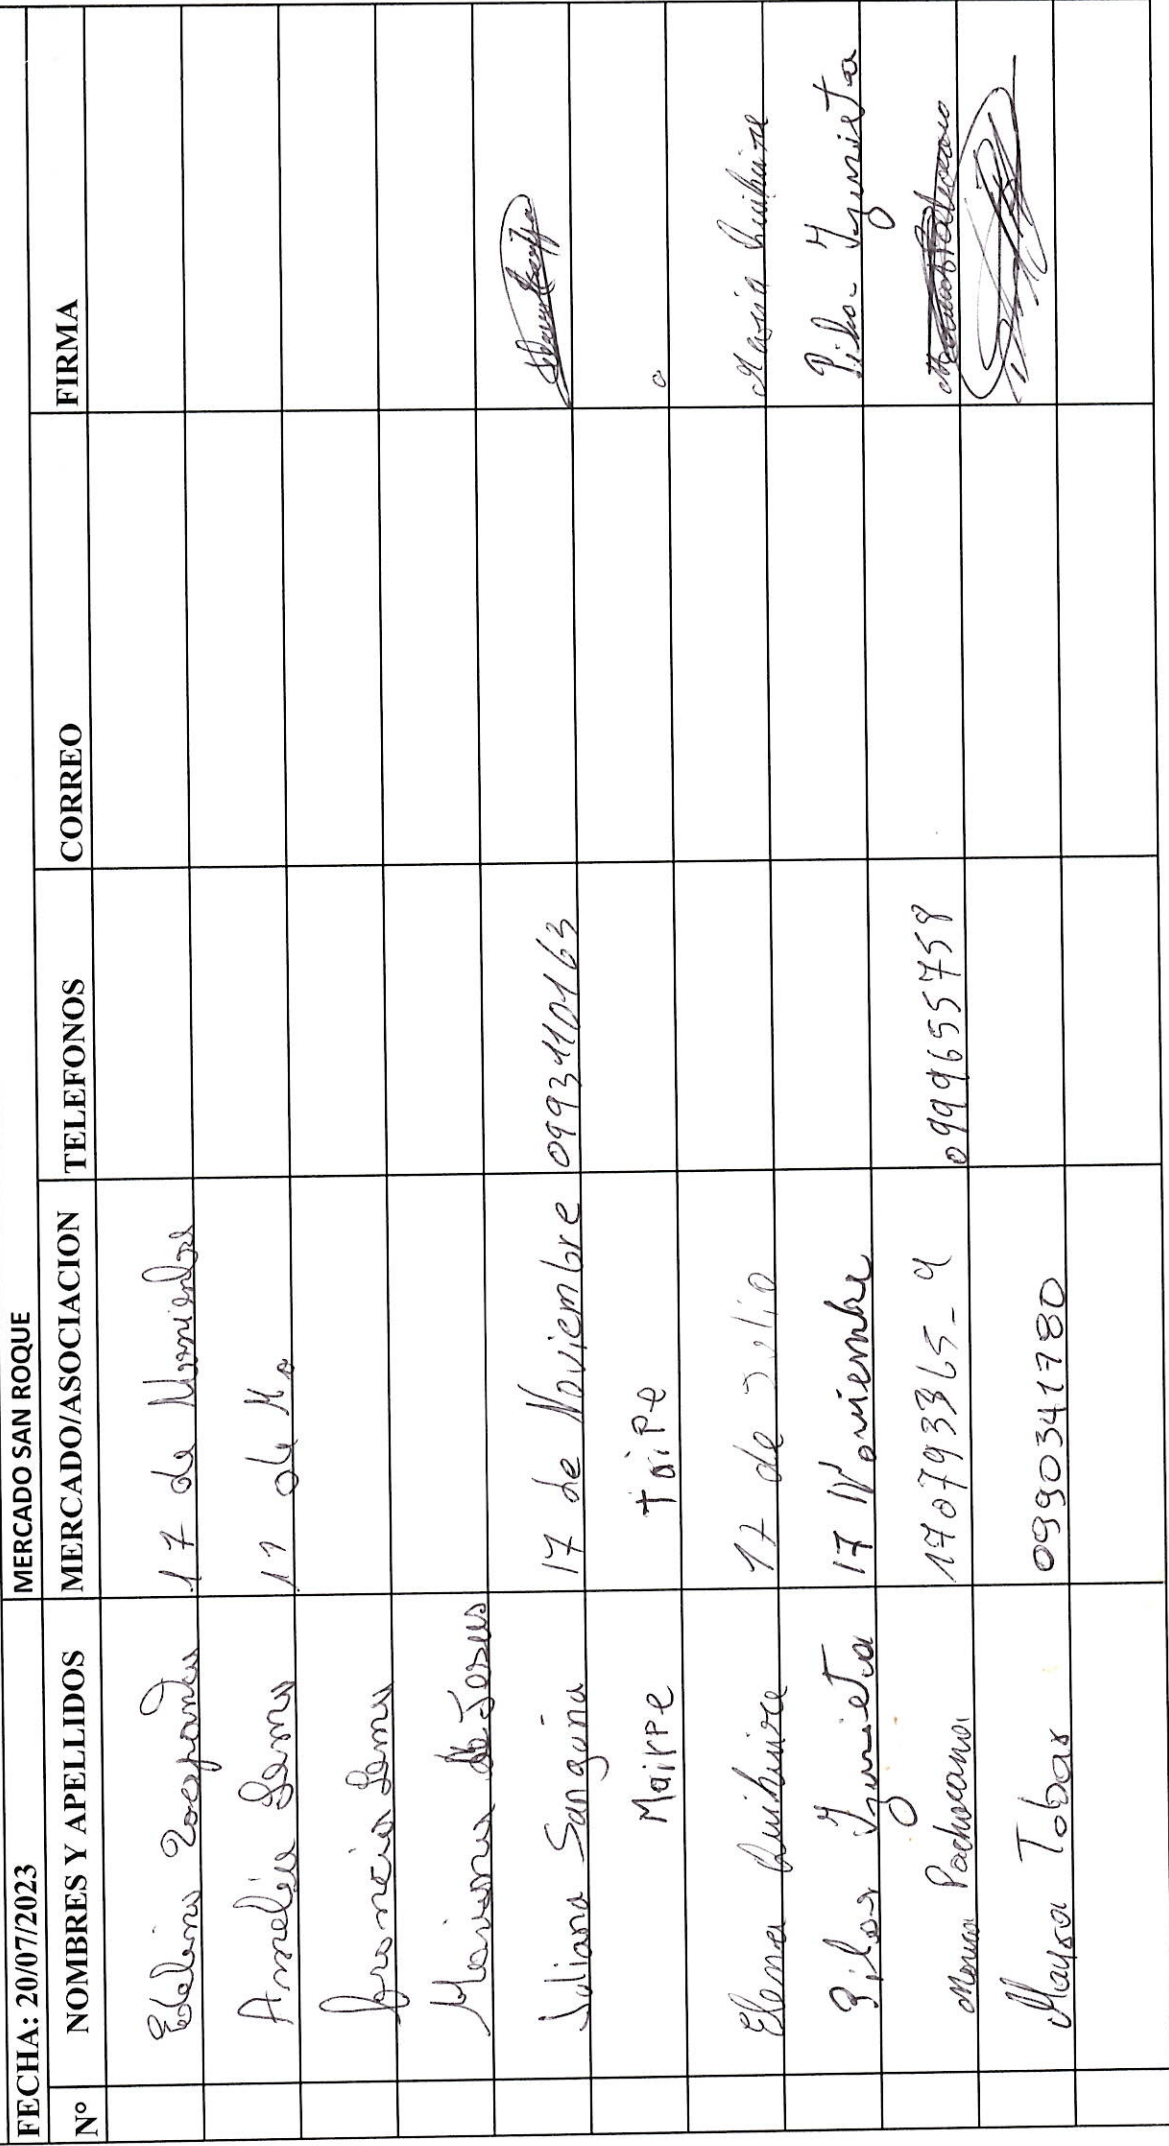 FECHA: 20/07/2023 MERCADO SAN ROQUE
N° NOMBRES Y APELLIDOS MERCADO/ASOCIACION TELEFONOS CORREO FIRMA
17 de
Amelia Lema 17 de No
Lema
Mariana de Jesus
Juliana Sanguña 17 de Noviembre 0993410163
Mairpe taipe
Elena Quihuire 17 de Julio Maria Quihuire
Pilar Izurieta 17 Noviembre Pilar Izurieta
Monica 170793365-9 0999655758
Mayra Tobar 0990341780